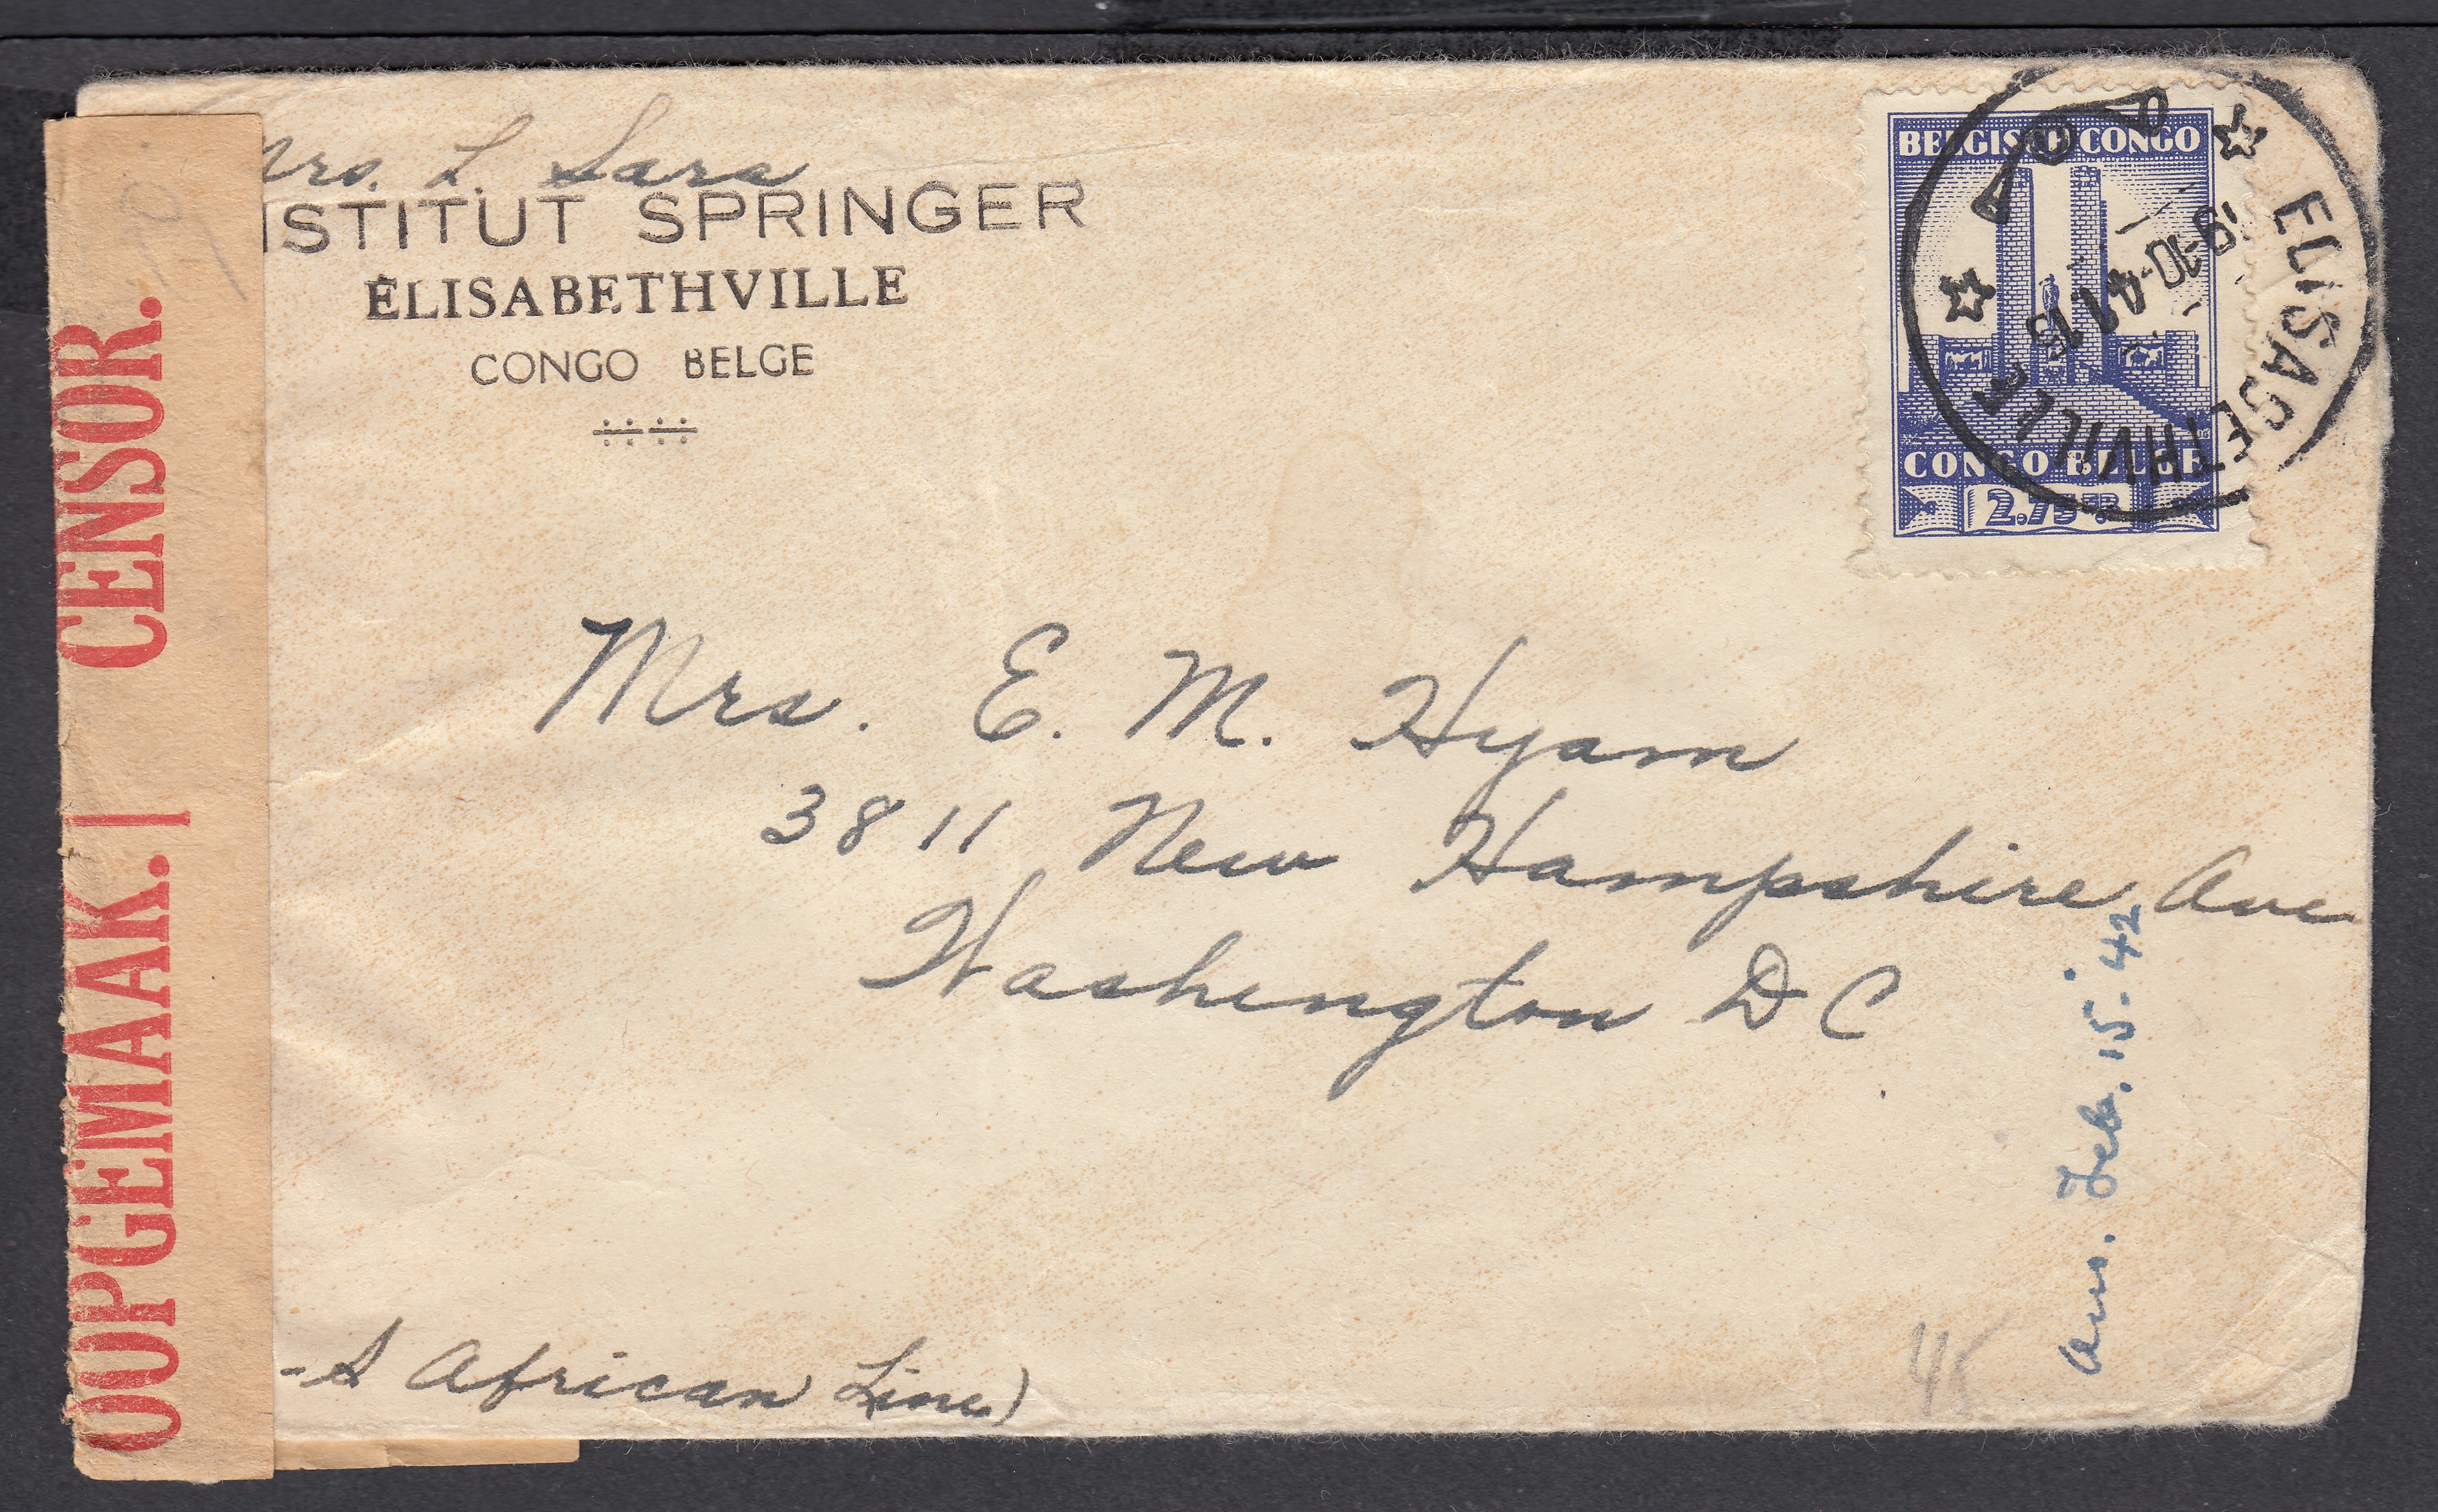 Mrs. L. Sara
NSTITUT SPRINGER
ÉLISABETHVILLE
CONGO BELGE
BELGISCH CONGO
CONGO BELGE
2.75 FR
ELISABETHVILLE
19-10-41 15
OOPGEMAAK. | CENSOR.
Mrs. E. M. Hyam
3811 New Hampshire Ave
Washington D C
-S African Line)
Feb. 15. '42